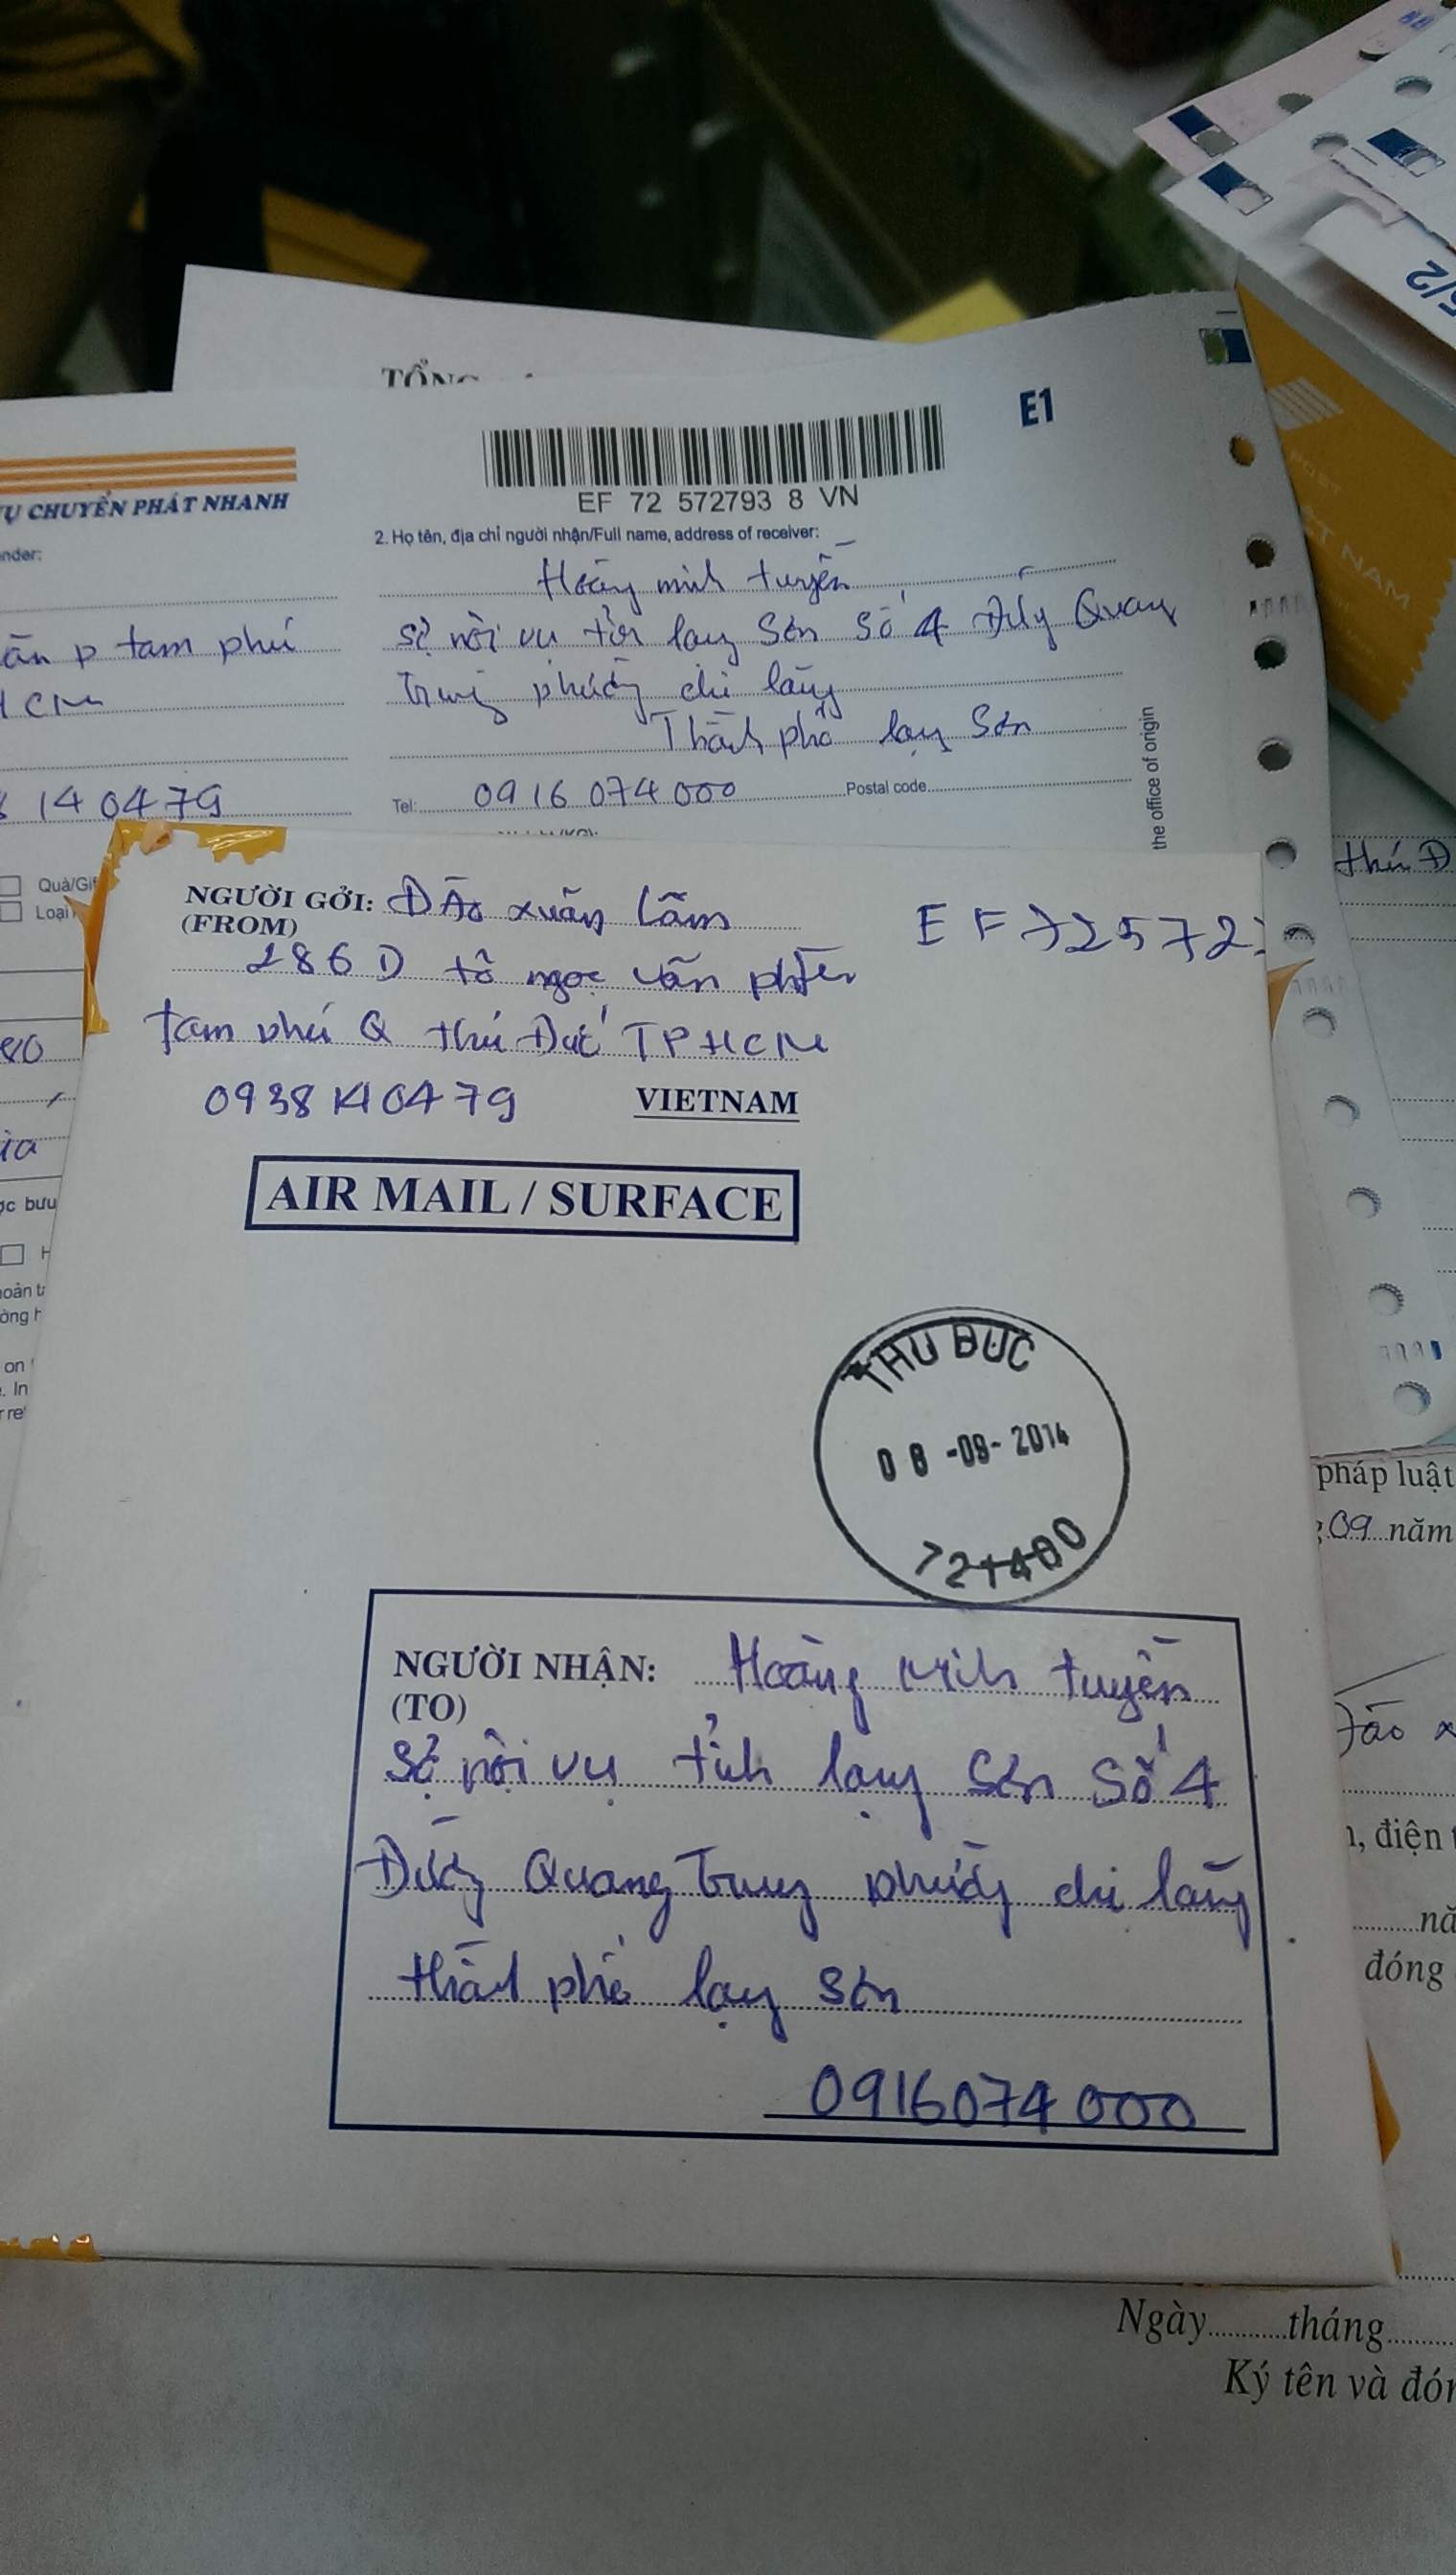 TỔNG
Ụ CHUYỂN PHÁT NHANH
E1
EF 72 572793 8 VN
nder:
2. Họ tên, địa chỉ người nhận/Full name, address of receiver:
Hoàng minh tuyên
ân p tam phú
sở nội vụ tỉnh lạng Sơn Số 4 Đường Quang
HCM
Trung phường chi lăng
Thành phố lạng Sơn
8 140479
Tel: 0916 074 000 Postal code
the office of origin
Quà/Gi
Loại
NGƯỜI GỞI: ĐÀO xuân Lãm
(FROM)
EF72572
286 D tô ngọc vân phường
tam phú Q thủ Đức TPHCM
0938140479 VIETNAM
AIR MAIL / SURFACE
THU DUC
08-09-2014
721400
NGƯỜI NHẬN: Hoàng Minh tuyên
(TO)
Sở nội vụ tỉnh lạng Sơn Số 4
Đường Quang Trung phường chi lăng
thành phố lạng Sơn
0916074000
thủ Đ
ợc bưu
H
oản t
ờng h
on
. In
r re
pháp luật
09 năm
Đào x
, điện t
nă
đóng
Ngày tháng
Ký tên và đón
POST
ỆT NAM
5/2